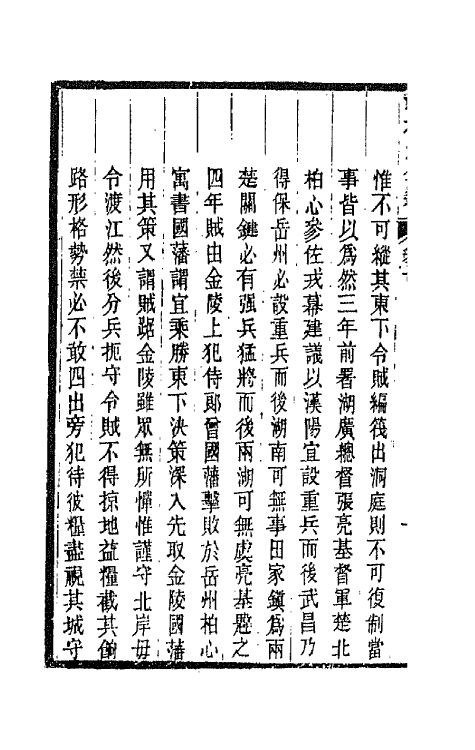 惟不可縱其東下令賊編筏出洞庭則不可復制當
事皆以爲然三年前署湖廣總督張亮基督軍楚北
柏心參佐戎幕建議以漢陽宜設重兵而後武昌乃
得保岳州必設重兵而後湖南可無事田家鎭爲兩
楚關鍵必有强兵猛將而後兩湖可無虞亮基韙之
四年賊由金陵上犯侍郎曾國藩擊敗於岳州柏心
寓書國藩謂宜乘勝東下決策深入先取金陵國藩
用其策又謂賊踞金陵雖眾無所憚惟謹守北岸毋
令渡江然後分兵扼守令賊不得掠地益糧截其餉
路形格勢禁必不敢四出旁犯待彼糧盡視其城守